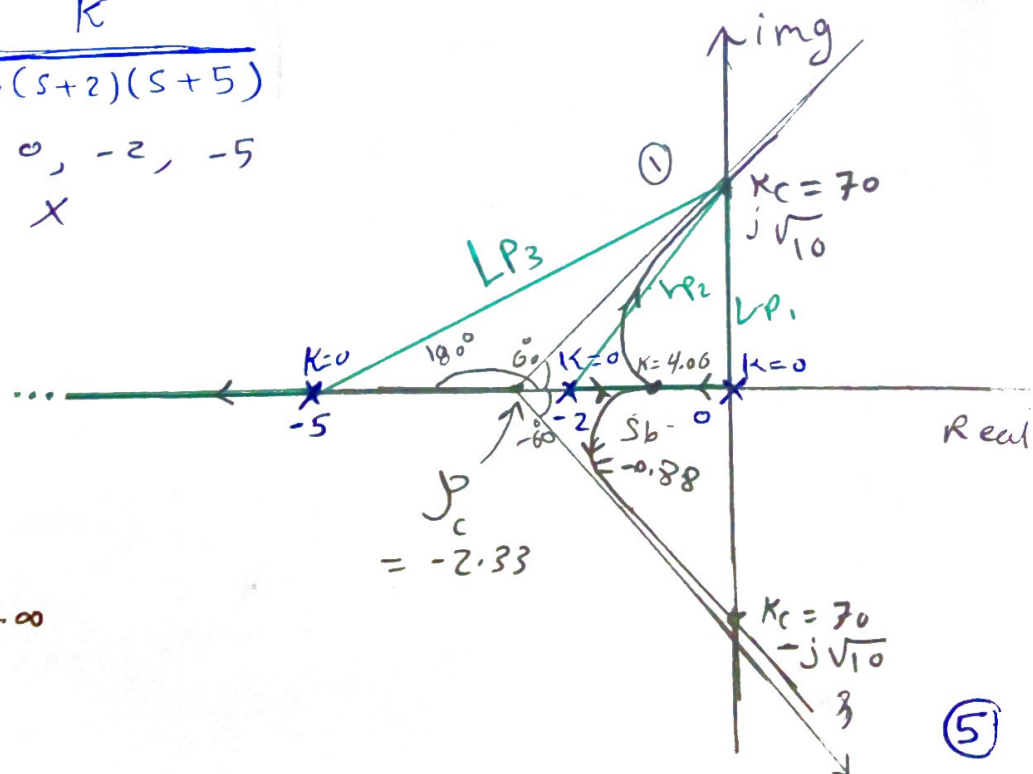 K
(S+2)(S+5)
0, -2, -5
X
img
①
Kc = 70
j√10
LP3
LP2
LP1
K=0
180°
60°
K=0
K=4.06
K=0
...
-5
-2
0
-60°
Sb
-0.88
Real
ρc
= -2.33
∞
Kc = 70
-j√10
3
⑤